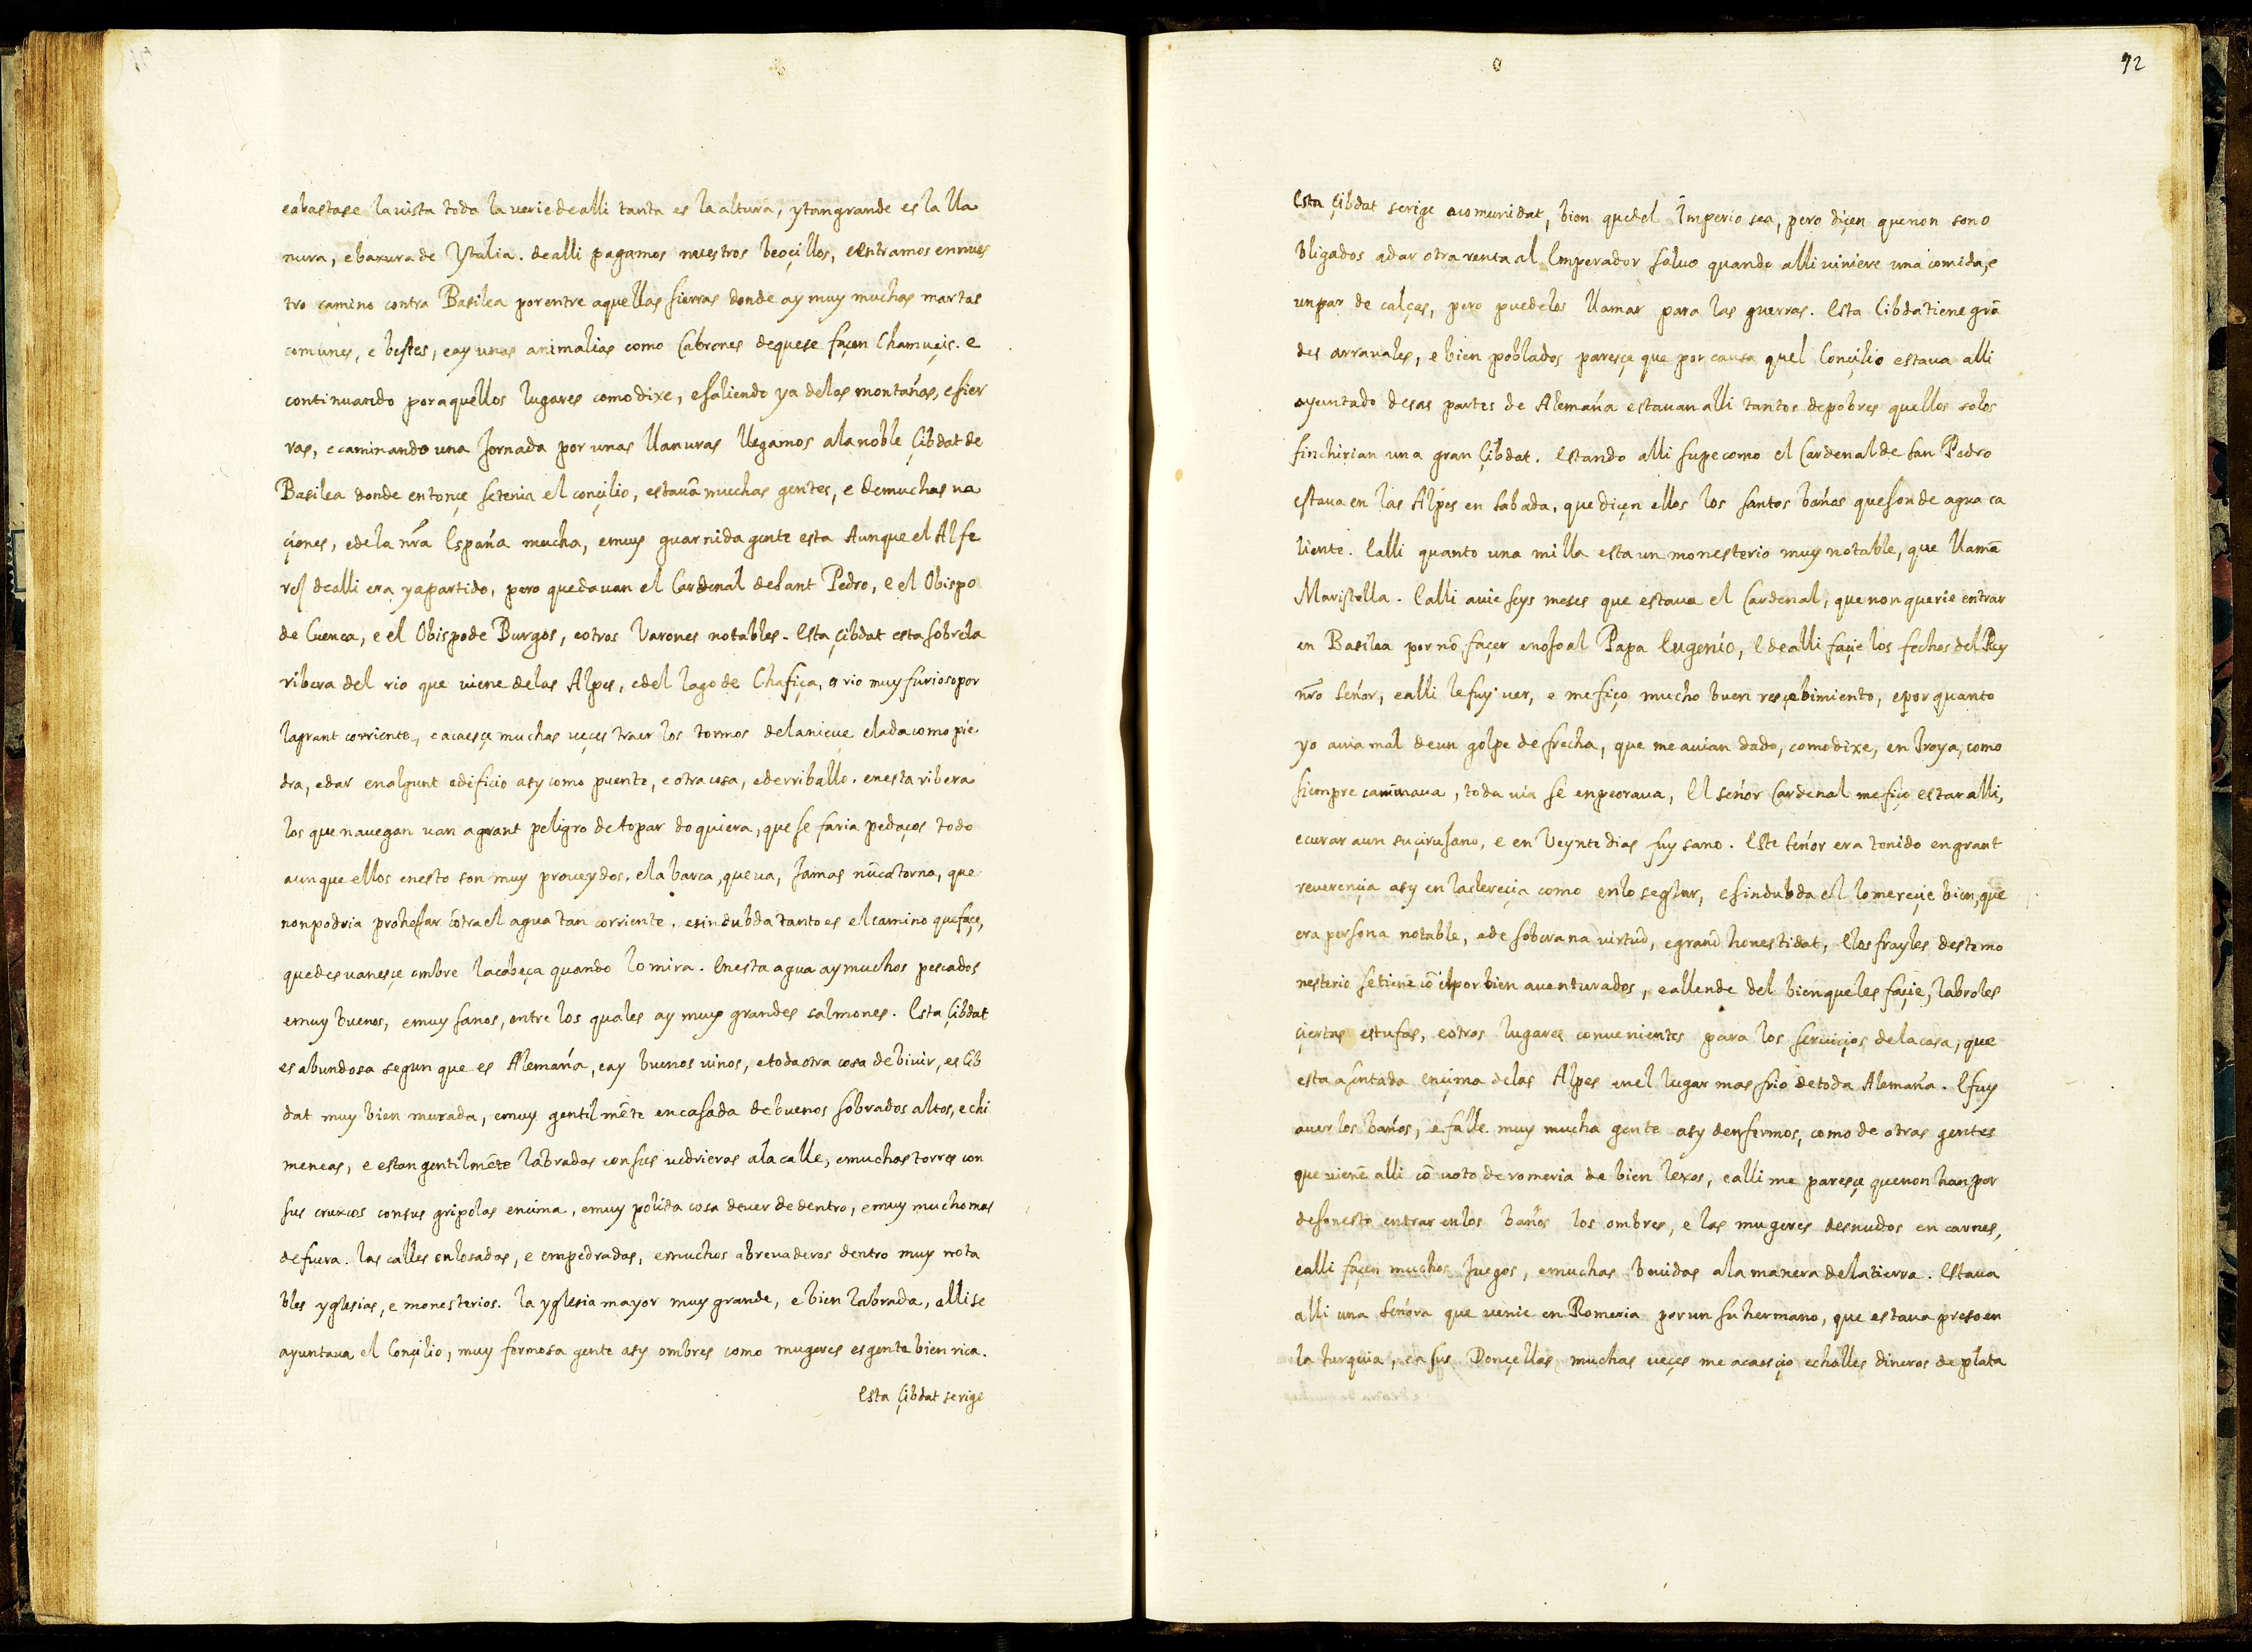 eabastase la vista toda la verie de alli tanta es la altura, y tan grande es la lla
nura, e baxura de Ytalia. de alli pagamos nuestros beoçillos, e entramos en nues
tro camino contra Basilea por entre aquellas sierras donde ay muy muchas martas
comunes, e bestes, e ay unas animalias como Cabrones de que se façen Chamuçis. e
continuando por aquellos lugares como dixe, e saliendo ya de las montañas, e sier
ras, e caminando una Jornada por unas llanuras llegamos a la noble Çibdat de
Basilea donde entonçe se tenia el conçilio, estavã muchas gentes, e de muchas na
çiones, e de la nr̃a España mucha, e muy guarnida gente esta Aunque el Alfe
res de alli era ya partido, pero quedavan el Cardenal de Sant Pedro, e el Obispo
de Cuenca, e el Obispo de Burgos, e otros Varones notables. Esta çibdat esta sobre la
ribera del rio que viene de las Alpes, e del lago de Chafiça, es rio muy furioso por
la grant corriente, e acaesçe muchas veçes traer los tormos de la nieve elada como pie
dra, e dar en algunt edificio asy como puente, e otra cosa, e derriballo. en esta ribera
los que navegan van a grant peligro de topar do quiera, que se faria pedaços todo
aunque ellos en esto son muy proveydos. e la barca, que va, Jamas nũca torna, que
non podria prohejar cõtra el agua tan corriente. e sin dubda tanto es el camino que façe,
que desvanesçe ombre la cabeça quando lo mira. En esta agua ay muchos pescados
e muy buenos, e muy sanos, entre los quales ay muy grandes salmones. Esta Çibdat
es abundosa segun que es Alemaña, e ay buenos vinos, e toda otra cosa de bivir, es Çib
dat muy bien murada, e muy gentilmẽte encasada de buenos sobrados altos, e chi
meneas, e estan gentilmẽte labradas con sus vedrieras a la calle, e muchas torres con
sus cruxes con sus gripolas encima, e muy polida cosa de ver de dentro, e muy mucho mas
de fuera. las calles enlosadas, e empedradas, e muchos abrevaderos dentro muy nota
bles yglesias, e monesterios. la yglesia mayor muy grande, e bien labrada, alli se
ayuntava el Conçilio, muy fermosa gente asy ombres como mugeres es gente bien rica.
Esta Çibdat se rige
92
Esta Çibdat se rige a comunidat, bien que del Imperio sea, pero diçen que non son o
bligados a dar otra renta al Emperador salvo quando alli viniere una comida, e
un par de calças, pero puedelos llamar para las guerras. Esta Cibda tiene grã
des arravales, e bien poblados paresçe que por causa quel Conçilio estava alli
ayuntado de sas partes de Alemaña estavan alli tantos de pobres quellos solos
finchirian una gran Çibdat. Estando alli supe como el Cardenal de San Pedro
estava en las Alpes en Sabada, que diçen ellos los santos baños que son de agua ca
liente. E alli quanto una milla esta un monesterio muy notable, que llamã
Maristella. E alli avie seys meses que estava el Cardenal, que non querie entrar
en Basilea por nõ façer enojo al Papa Eugenio, E de alli façie los fechos del Rey
nr̃o Señor, e alli le fuy ver, e me fiço mucho buen resçebimiento, e por quanto
yo avia mal de un golpe de frecha, que me avian dado, como dixe, en Troya, como
siempre caminava, toda via se enpeorava, El señor Cardenal me fiço estar alli,
e curar a un su çirujano, e en Veynte dias fuy sano. Este Señor era tenido en grant
reverençia asy en la clereçia como en lo seglar, e sin dubda el lo mereçie bien, que
era persona notable, e de soberana virtud, e grand honestidat, E los frayles deste mo
nesterio se tiene cõ el por bien aventurados, e allende del bien que les façie, labroles
çiertas estufas, e otros lugares convenientes para los serviçios de la casa, que
esta asentada ençima de las Alpes en el lugar mas frio de toda Alemaña. E fuy
a ver los baños, e falle muy mucha gente asy denfermos, como de otras gentes
que vienẽ alli cõ voto de romeria de bien lexos, e alli me paresçe que non han por
desonesto entrar en los baños los ombres, e las mugeres desnudos en carnes,
e alli façen muchos Juegos, e muchas bevidas a la manera de la tierra. Estava
alli una Señora que venie en Romeria por un su hermano, que estava preso en
la turquia, e a sus Donçellas muchas veçes me acaesçio echalles dineros de plata